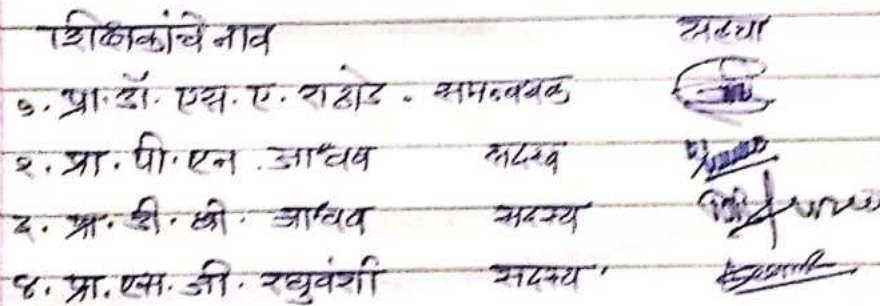 शिक्षकांचे नाव सह्या
१. प्रा. डॉ. एस. ए. राठोड . समन्वयक
२. प्रा. पी. एन. जाधव सदस्य
३. प्रा. डी. सी. जाधव सदस्य
४. प्रा. एस. जी. रघुवंशी सदस्य